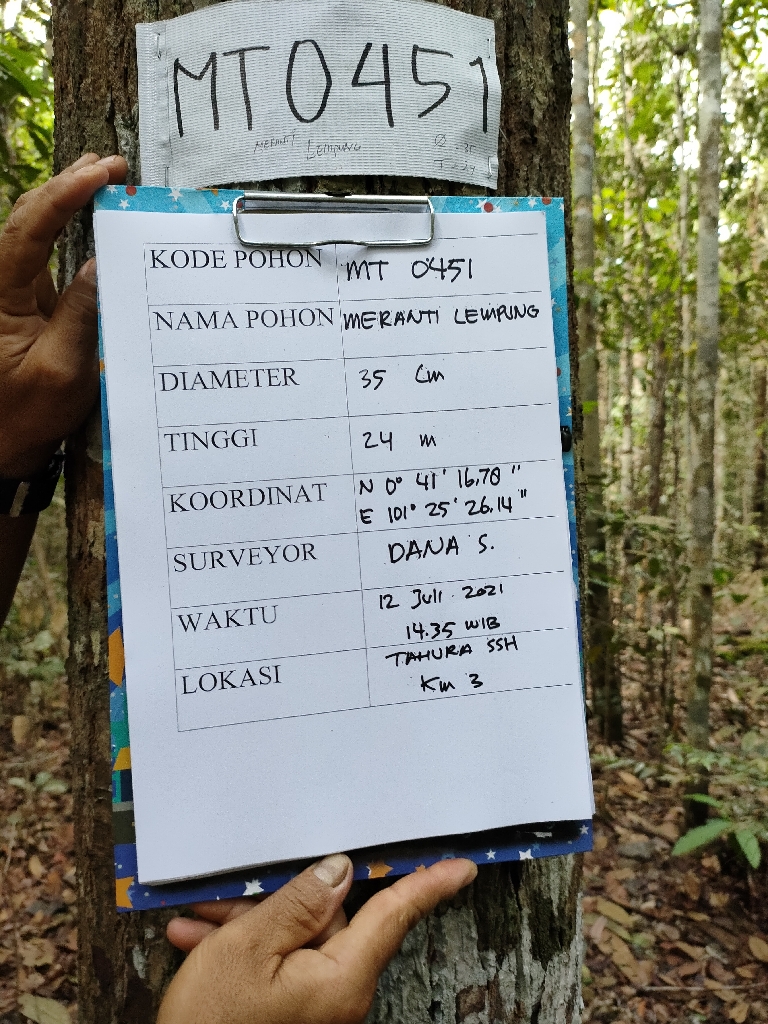 MT0451
MERANTI LEMPUNG
KODE POHON MT 0451
NAMA POHON MERANTI LEMPUNG
DIAMETER 35 Cm
TINGGI 24 m
KOORDINAT N 0° 41' 16,78 "
E 101° 25' 26,14 "
SURVEYOR DANA S.
WAKTU 12 Juli 2021
14.35 WIB
LOKASI TAHURA SSH
Km 3